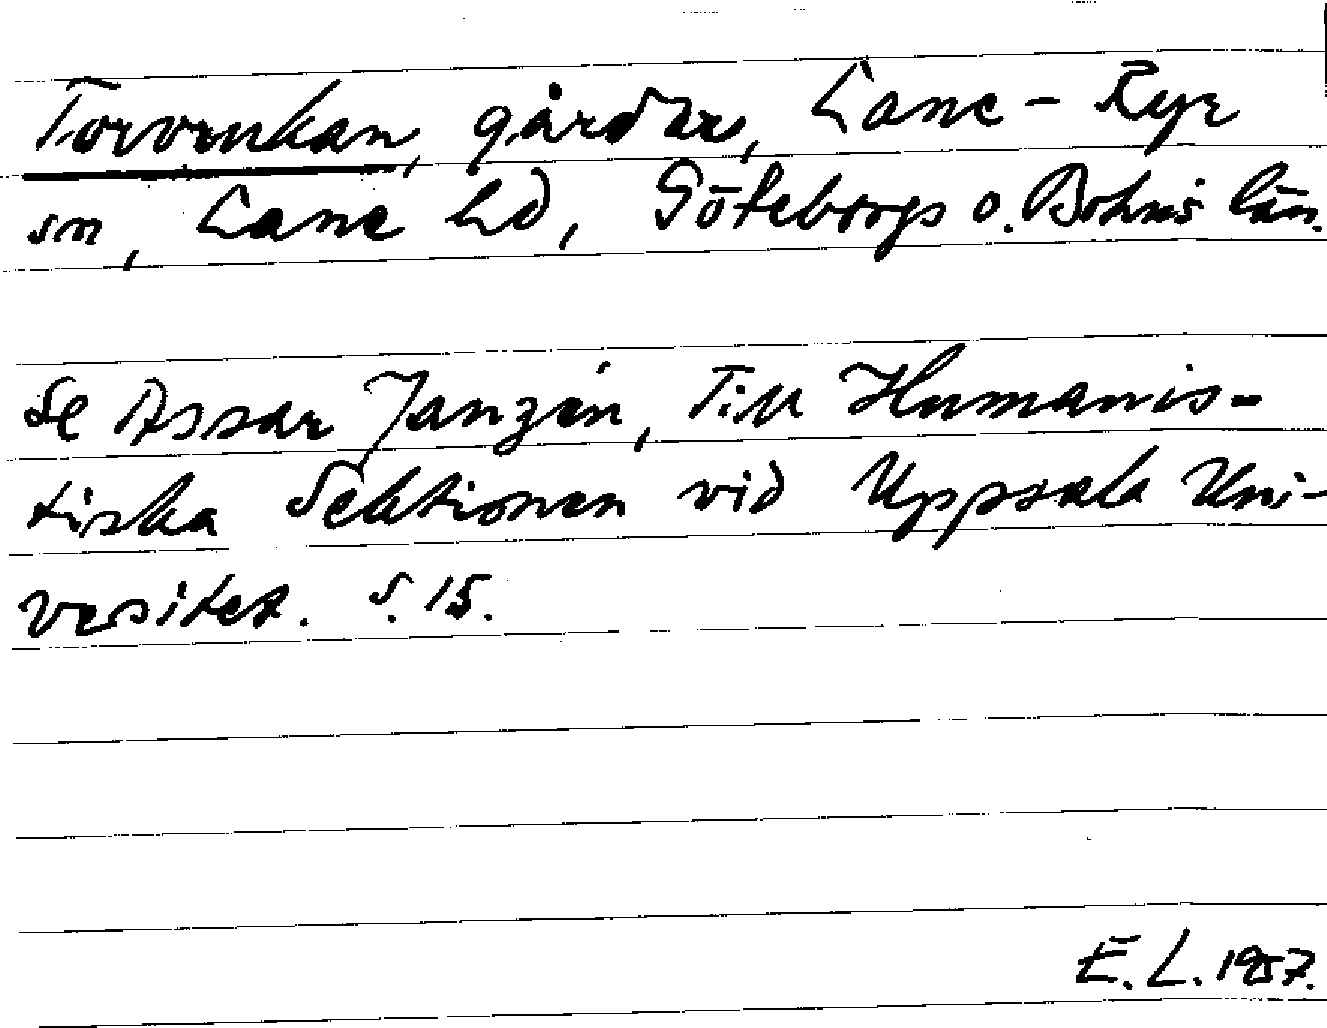 Torvonukan, gårdar, Lane-Ryr
sn, Lane hd, Göteborgs o. Bohus län.
Se Assar Janzén, Till Humanis-
tiska Sektionen vid Uppsala Uni-
versitet. S. 15.
E. L. 1957.